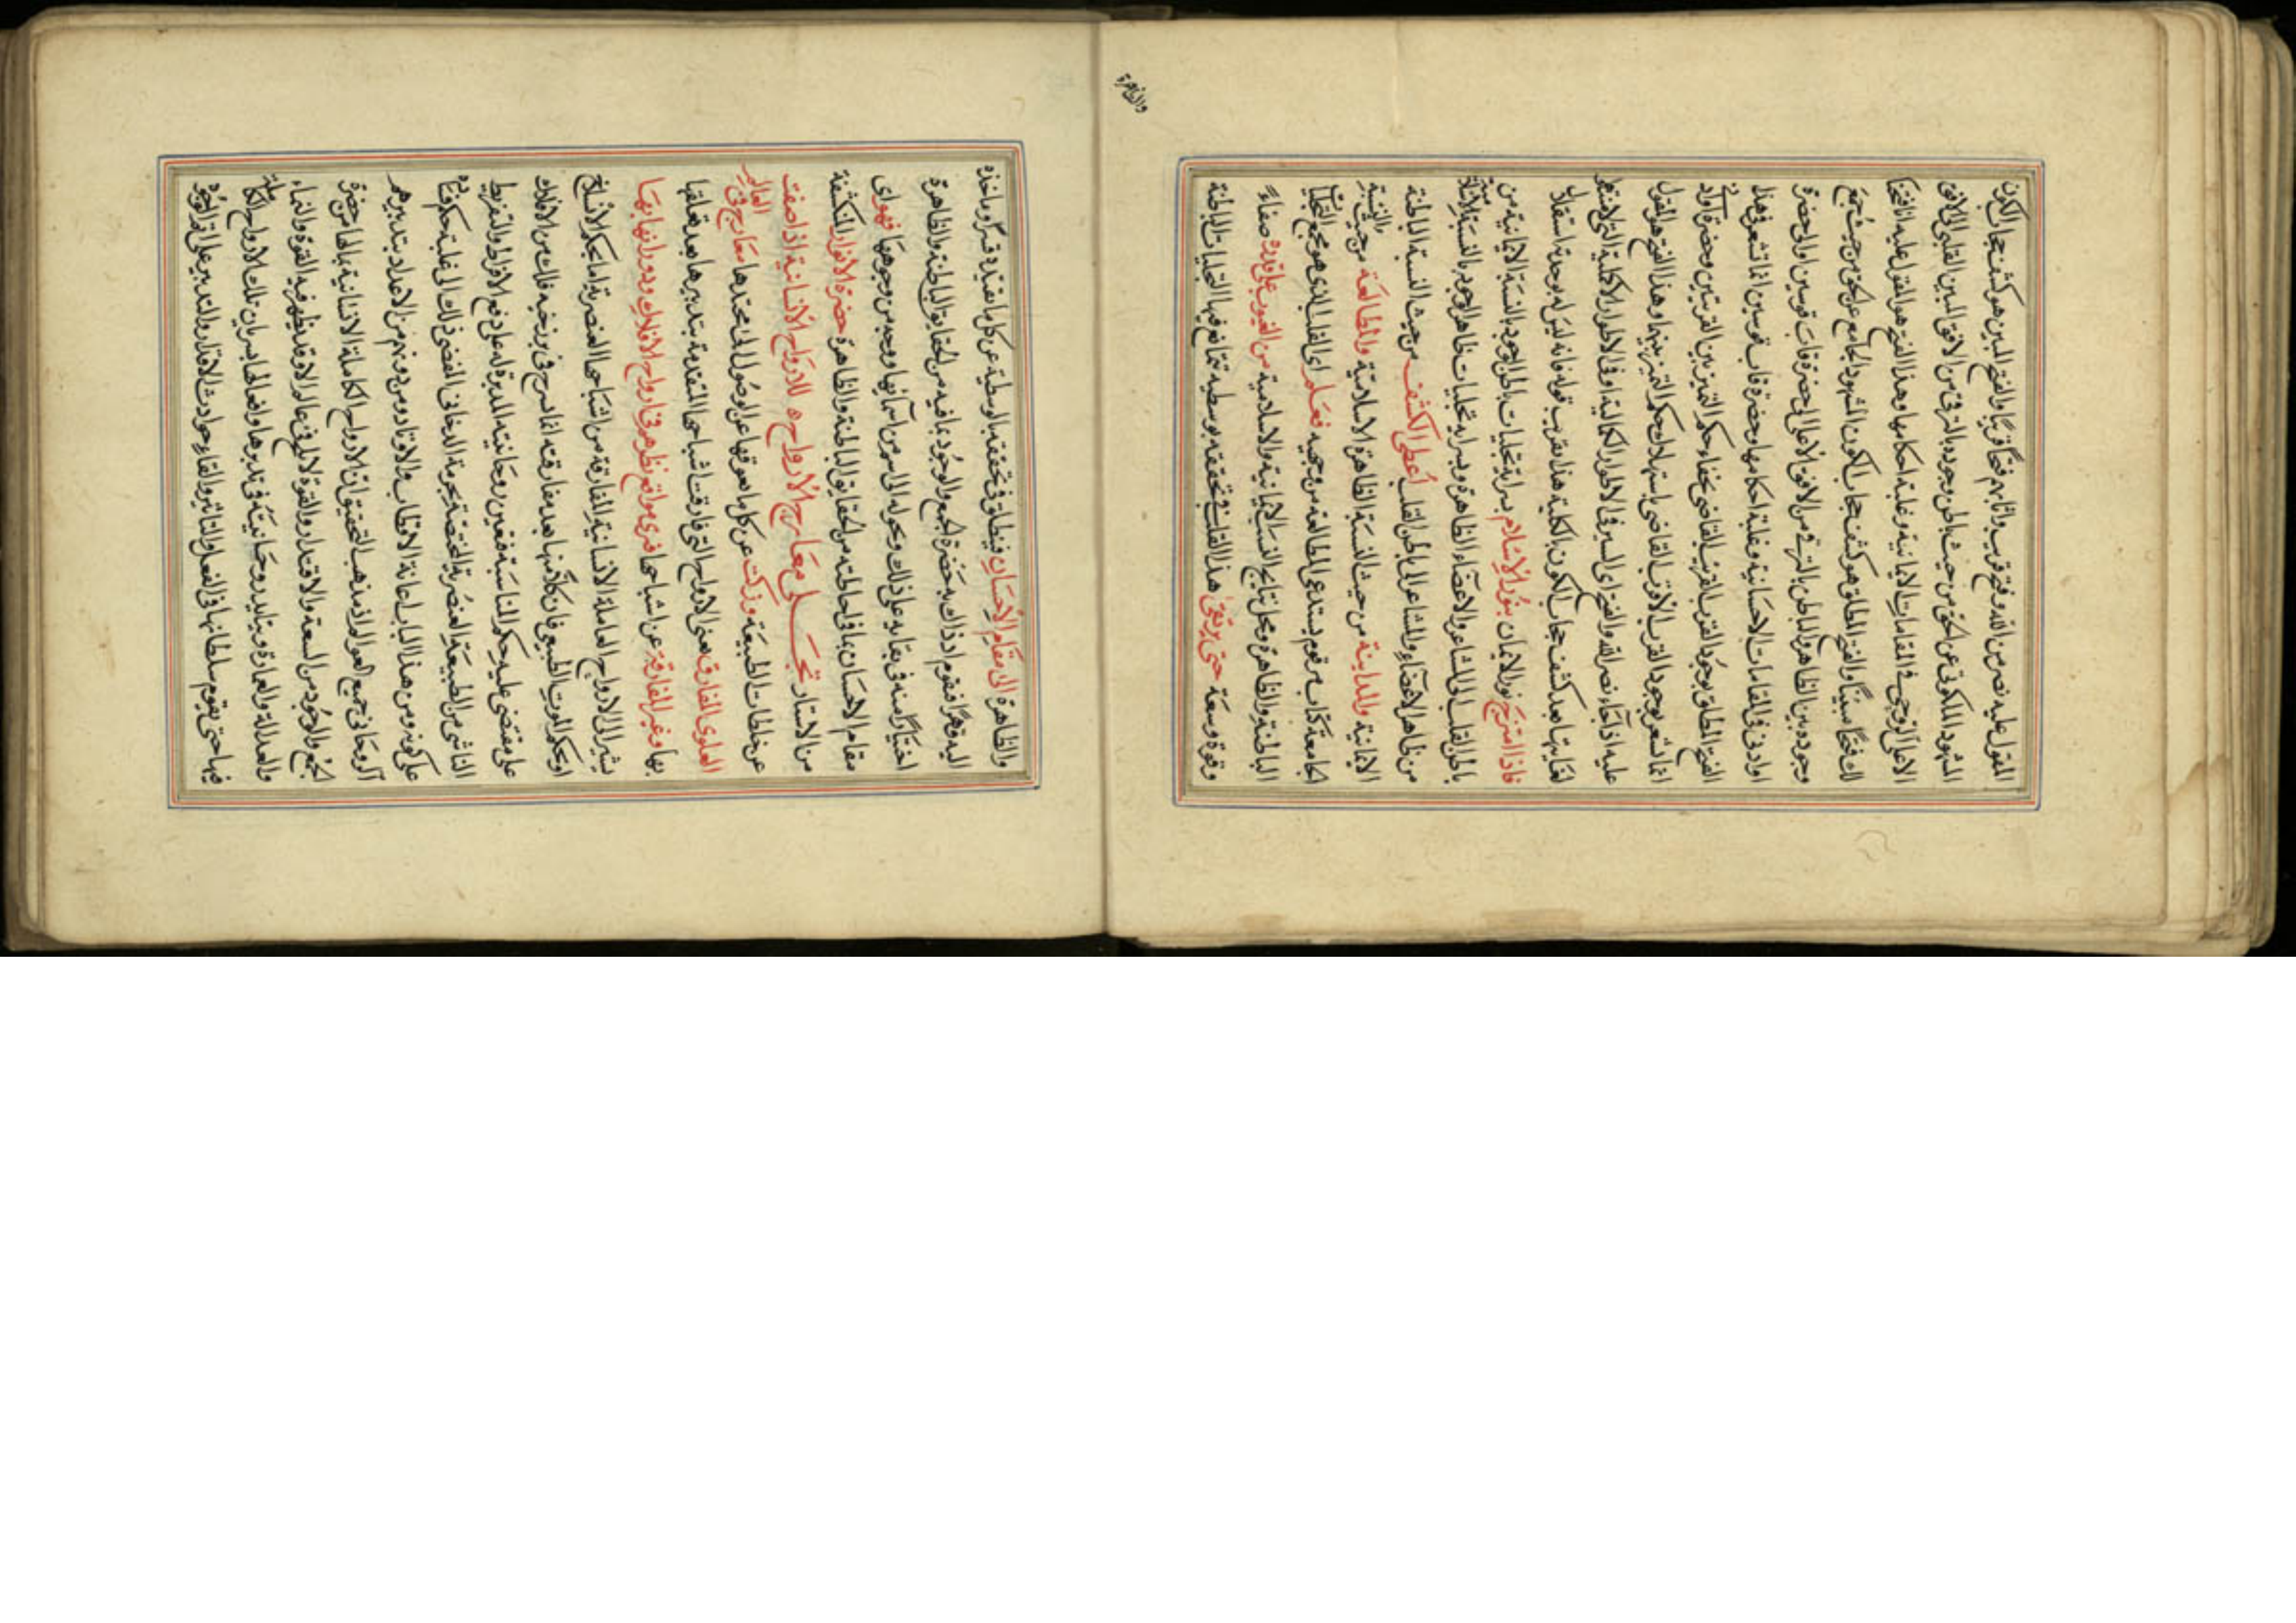 المقول عليه نصر من الله وفتح قريب واثابهم فتحا قريبا والفتح المبين هو كشف حجاب الكون
المشهود الملكوتي عن الحق من حيث باطن وجوده بالترقي من الافق المبين القلبي الى الافق
الاعلى الروحي في المقامات الايمانية وغلبة احكامها وهذا الفتح هو المقول عليه انا فتحنا
لك فتحا مبينا والفتح المطلق هو كشف حجاب الكون المشهود الجامع عن الحق من حيث جمع
وجوده بين الظاهر والباطن بالترقي من الافق الاعلى الى حضرة قاب قوسين او الى حضرة
او ادنى في المقامات الاحسانية وغلبة احكامها وحضرة قاب قوسين انما تشعر في هذا
الفتح المطلق بوجود القرب القريب القاضي بخفاء حكم التميز بين القربتين وحضرة او ادنى
انما تشعر بوجود القرب الاقرب القاضي باستهلاك حكم التميز بينهما وهذا الفتح هو المقول
عليه اذا جاء نصر الله والفتح اي السير في الاطوار الكمالية او في الاطوار الاكملية التي لا
لغايتها بعد كشف حجاب الكون بالكلية هذا تقريب قوله فانه ليس له بوحدة استقلال
فاذا امتزج نور الايمان بنور الاسلام بسراية تجليات باطن الوجود بالنسبة الايمانية من
باطن القلب الى المشاعر والاعضاء الظاهرة وبسراية تجليات ظاهر الوجود بالنسبة الاسلامية
من ظاهر الاعضاء والمشاعر الى باطن القلب اعطى الكشف من حيث النسبة الباطنة
الايمانية والمعاينة من حيث النسبة الظاهرة الاسلامية والمطالعة من حيث النسبة
الجامعة كتاب مرقوم يستدعي المطالعة من وجهيه فعلم اي القلب الذي هو مجمع
الباطنة والظاهرة ومحل نتايج النسب الايمانية والاسلامية من الغيوب على قدره صفاء
وقوة وسعة حتى يرتقي هذا القلب في تحققه بوسطية تمانع فيها التجليات الباطنة
والظاهرة
والظاهرة الى مقام الاحسان فينطلق في تحققه بالوسطية عن كل ما تقيده قسرا وماخذة
اليه قهرا فيقوم اذ ذاك به حضرة الجمع والوجود بما فيه من الحقايق الباطنة والظاهرة
اختيارا منه في بقايه على ذلك وتحوله الى اسم من اسمايها ووجه من وجوهها فهو اي
مقام الاحسان بما في احاطته من الحقايق الباطنة والظاهرة حضرة الانوار المنكشفة
من الاستار تجلي معارج الارواح للارواح الانسانية اذا صفت
عن خلطات الطبيعة وزكت عن كل ما يعوقها عن الوصول الى محتدها معارج في العالم
العلوي المفارق يعني الارواح التي فارقت اشباحها المتقدمة بتدبيرها بعد تعلقها
بها وغير المفارق عن اشباحها فترى مواقع نظرهم في ارواح الافلاك ودورانها بها
يشير الى الارواح العاملة الانسانية المفارقة من اشباحها العنصرية اما بحكم الانسلاخ
او بحكم الموت الطبيعي فان كلا منها بعد مفارقته انما يسرح في برزخية فلك من الافلاك
على مقتضى غلبة حكم المناسبة فتعين روحانيته المدبرة له على دفع الافراط والتفريط
الناشي من الطبيعة العنصرية المختصة بجرمه الدخاني المفضي ذلك الى غلبة حكم فساده
على كونه ومن هذا الباب اعانة الاقطاب والاوتاد ومن دونهم من الاعداد بتدبيرهم
الروحاني جميع العوالم اذ مذهب التحقيق ان للارواح الكاملة الانسانية بمالها من حضرة
الجمع والوجود من السعة والاقتدار والقوة لا يلقى عالم الا وقد يظهر فيه القوة والنماء
والعدالة والعمارة وبتاييد روحانيته في تدبيرها وافعالها بسريان تلك الارواح الكاملة
فيها حتى يقوم سلطانها في الفعل والتاثير والقاء حوادث الاقدار والتدبير على اقدار الوجود